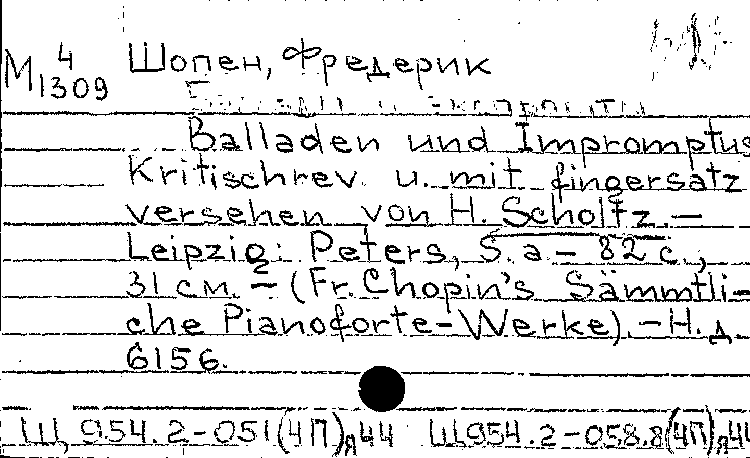 М 4/1309 Шопен, Фредерик
Balladen und Impromptus
Kritischrev. u. mit fingersatz
versehen von H. Scholtz. —
Leipzig: Peters, S. a — 82 с.,
31 см. — (Fr. Chopin's Sämmtli-
che Pianoforte-Werke). — Н. д.
6156.
Щ954.2-051(4П)я44 Щ954.2-058.8(4П)я44